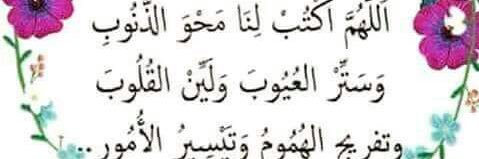 اَللّهُمَّ اكْتُبْ لِنَا مَحْوَ الذُّنُوبِ
وَسَتِّرْ العُيُوبَ وَلَيِّنْ القُلُوبَ
وتفريج الهُمُومُ وَتَيْسِيرُ الأُمُورِ..